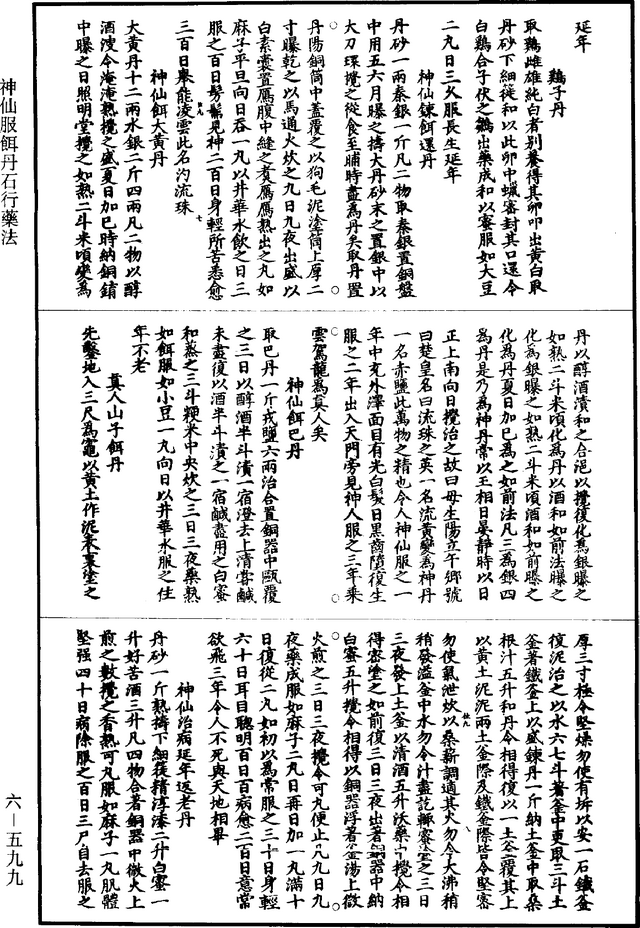 延年
鷄子丹
取鷄雌雄純白者别養得其卵叩出黄白取
丹砂下細篵和以此卵中蠟密封其口還令
白鷄合子伏之鶵出藥成和以蜜服如大豆
二九日三火服長生延年
神仙鍊餌還丹
丹砂一兩秦銀一斤凡二物取秦銀置銅盤
中用五六月曝之擣大丹砂末之置銀中以
大刀環攪之從食至晡時盡爲丹矣取丹置
丹陽銅筒中蓋覆之以狗毛泥塗筒上厚二
寸曝乾之以馬通火炊之九日九夜出盛以
白素囊置鴈腹中縫之煑鴈鴈熟出之丸如
麻子平旦向日吞一丸以井華水飲之日三
服之百日髣髴見神二百日身輕所苦悉愈
三百日舉能凌雲此名汋流珠
神仙餌大黄丹
大黄丹十二兩水銀二斤四兩凡二物以醇
酒溲令淹淹熟攪之盛夏日加巳時納銅鋗
中曝之日照明堂攪之如熟二斗米頃變爲
丹以醇酒漬和之合浥以攪復化爲銀曝之
如熟二斗米頃化爲丹以酒和如前法曝之
化爲銀曝之如熟二斗米頃酒和如前曝之
化爲丹夏日加巳爲之如前法凡三爲銀四
爲丹是乃爲神丹常以王相日晏静時以日
正上南向日攪治之故曰毋生陽立午鄉號
曰楚皇名曰流珠之英一名流黄變爲神丹
一名赤鹽此萬物之精也令人神仙服之一
年中充外澤面目有光白髮日黒齒墮復生
服之二年出入天門旁見神人服之三年乘
雲駕龍爲真人矣
神仙餌巴丹
取巴丹一斤戎鹽六兩治合置銅器中甌覆
之三日以醇酒半斗漬一宿澄去上清當鹹
未盡復以酒半斗漬之一宿鹹盡用之白蜜
和蒸之三斗粳米中央炊之三日三夜藥熟
如餌服如小豆一丸向日以井華水服之住
年不老
真人山子餌丹
先鑿地入三尺爲竈以黄土作泥表裏塗之
厚三寸極令堅燥勿使有坼以安一石鐵釜
復泥治之以水六七斗著釜中更取三斗土
釜著鐵釜上以盛鍊丹一斤納土釜中取桑
根汁五升和丹令相得復以一土釜覆其上
以黄土泥泥兩土釜際及鐵釜際皆令堅密
勿使氣泄炊以桑薪調適其火勿令大沸稍
稍發溢釜中水勿令汁盡訖輙密塗之三日
三夜發上土釜以清酒五升沃藥中攪令相
得密塗之如前復三日三夜出著銅器中納
白蜜五升攪令相得以銅器浮著釜湯上微
火煎之三日三夜攪令可丸便止凡九日九
夜藥成服如麻子二丸日再日加一丸滿十
日復從二丸如初以爲常服之三十日身輕
六十日耳目聰明百日百病愈二百日意常
欲飛三年令人不死與天地相畢
神仙治病延年返老丹
丹砂一斤熟擣下細篵精淳漆二升白蜜一
升好苦酒三升凡四物合著銅器中微火上
煎之數攪之香熟可丸服如麻子一丸肌體
堅强四十日病除服之百日三尸自去服之
神仙服餌丹石行藥法
六—五九九